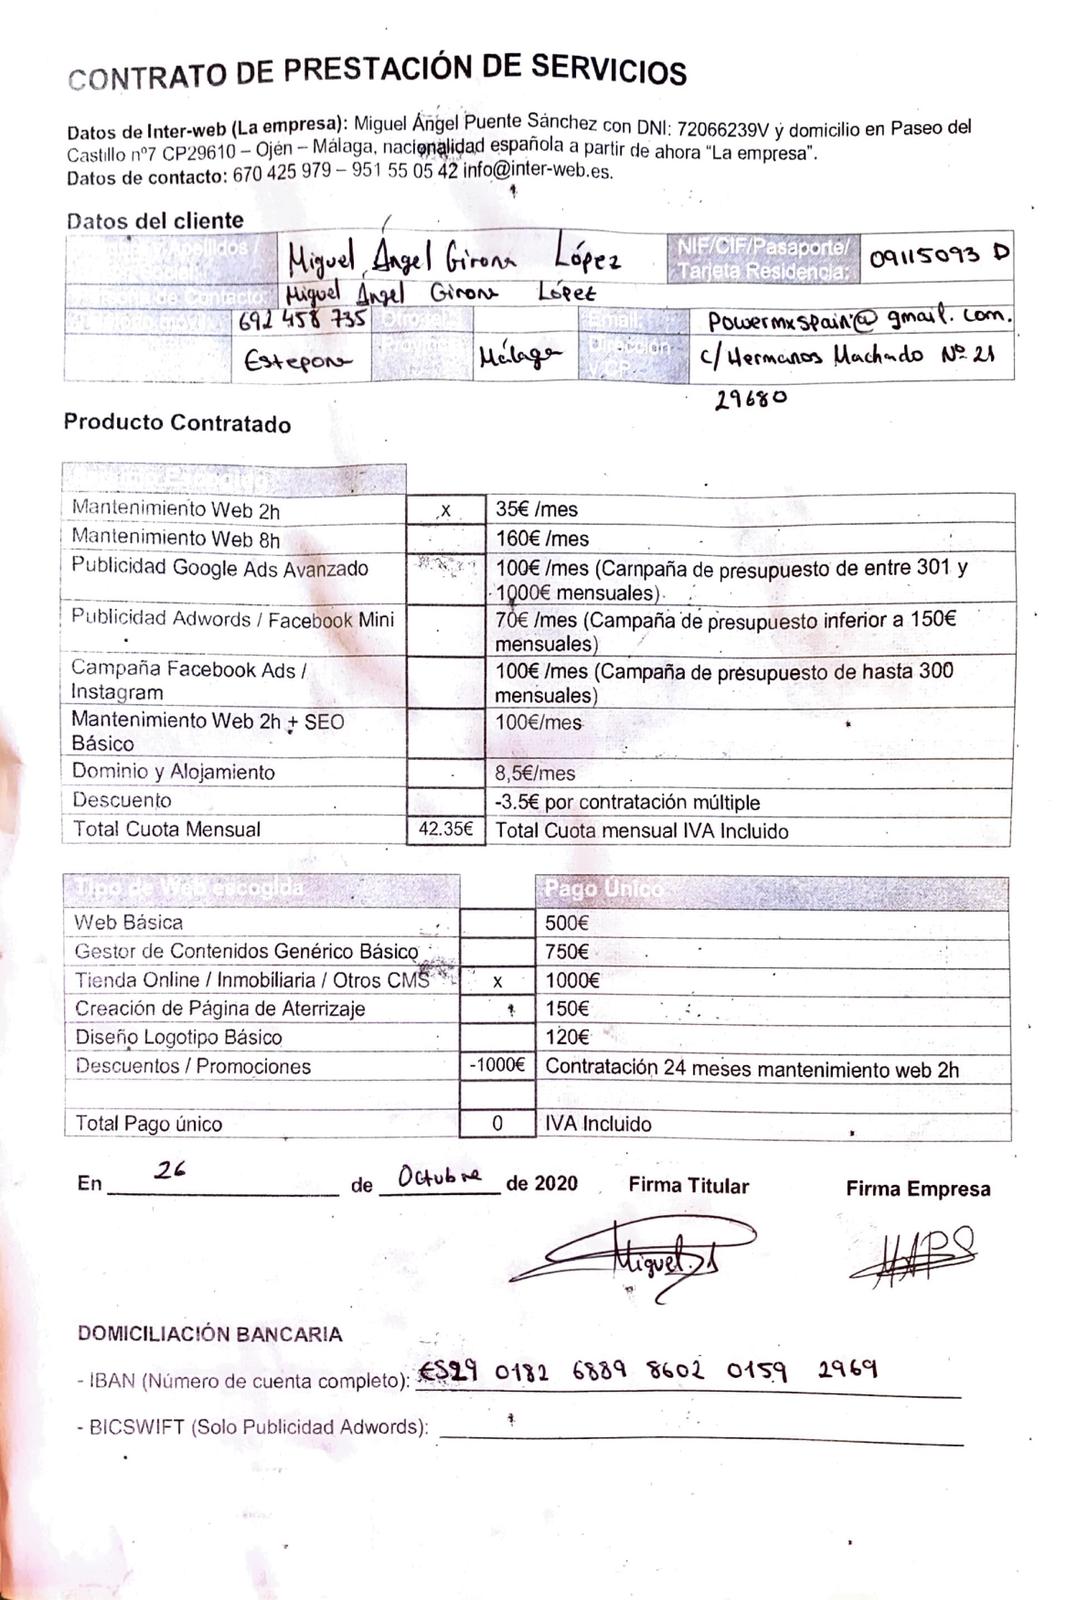 CONTRATO DE PRESTACIÓN DE SERVICIOS
Datos de Inter-web (La empresa): Miguel Ángel Puente Sánchez con DNI: 72066239V y domicilio en Paseo del
Castillo nº7 CP29610 – Ojén – Málaga, nacionalidad española a partir de ahora "La empresa".
Datos de contacto: 670 425 979 – 951 55 05 42 info@inter-web.es.
Datos del cliente
Apellidos / Miguel Ángel Girona López NIF/CIF/Pasaporte/ 09115093 D
Tarjeta Residencia:
de Contacto: Miguel Ángel Girona López
692 458 735 Email: powermxspain@gmail.com.
Estepona Provincia Málaga Dirección c/ Hermanos Machado Nº 21
29680
Producto Contratado
Mantenimiento Web 2h x 35€ /mes
Mantenimiento Web 8h 160€ /mes
Publicidad Google Ads Avanzado 100€ /mes (Campaña de presupuesto de entre 301 y
1000€ mensuales)
Publicidad Adwords / Facebook Mini 70€ /mes (Campaña de presupuesto inferior a 150€
mensuales)
Campaña Facebook Ads / 100€ /mes (Campaña de presupuesto de hasta 300
Instagram mensuales)
Mantenimiento Web 2h + SEO 100€/mes
Básico
Dominio y Alojamiento 8,5€/mes
Descuento -3.5€ por contratación múltiple
Total Cuota Mensual 42.35€ Total Cuota mensual IVA Incluido
Tipo de Web escogida Pago Único
Web Básica 500€
Gestor de Contenidos Genérico Básico 750€
Tienda Online / Inmobiliaria / Otros CMS x 1000€
Creación de Página de Aterrizaje 150€
Diseño Logotipo Básico 120€
Descuentos / Promociones -1000€ Contratación 24 meses mantenimiento web 2h
Total Pago único 0 IVA Incluido
En 26 de Octubre de 2020 Firma Titular Firma Empresa
Miguel
DOMICILIACIÓN BANCARIA
- IBAN (Número de cuenta completo): ES29 0182 6889 8602 0159 2969
- BICSWIFT (Solo Publicidad Adwords):